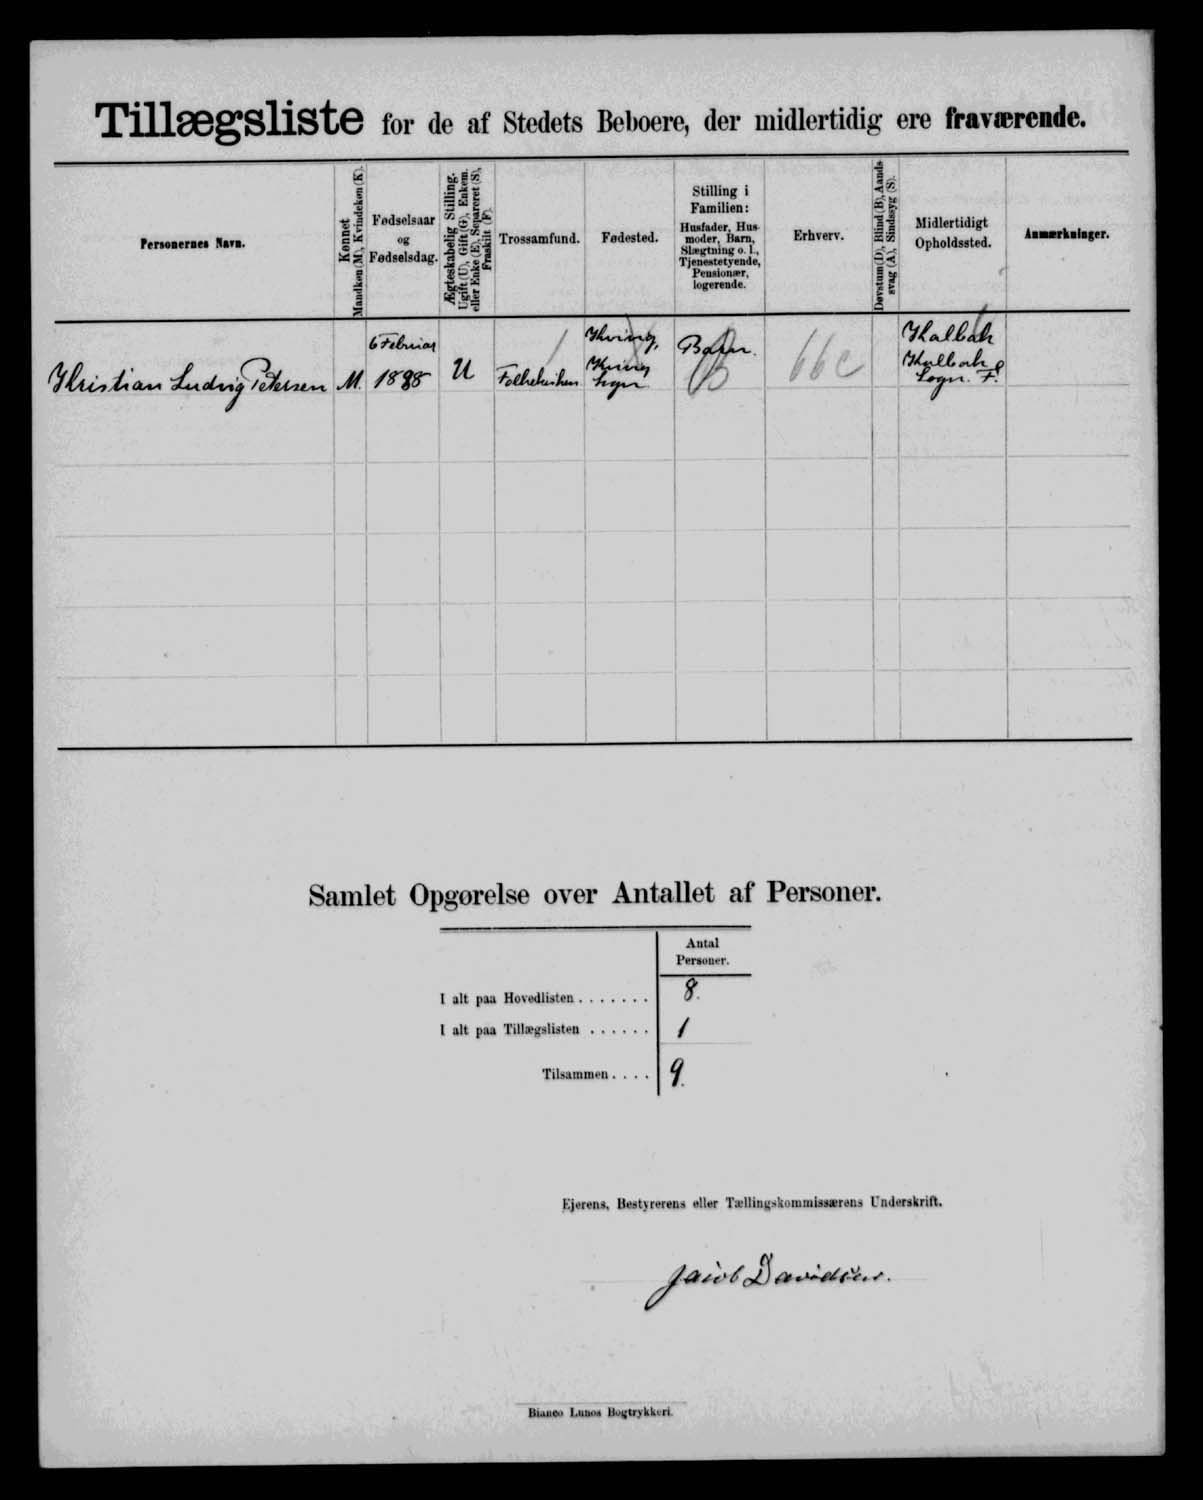 Tillægsliste for de af Stedets Beboere, der midlertidig ere fraværende.
Personernes Navn.
Kønnet
Mandkøn (M), Kvindekøn (K).
Fødselsaar
og
Fødselsdag.
Ægteskabelig Stilling.
Ugift (U), Gift (G), Enkem.
eller Enke (E), Separeret (S),
Fraskilt (F).
Trossamfund.
Fødested.
Stilling i
Familien:
Husfader, Hus-
moder, Barn,
Slægtning o. l.,
Tjenestetyende,
Pensionær,
logerende.
Erhverv.
Døvstum (D), Blind (B), Aands-
svag (A), Sindssyg (S).
Midlertidigt
Opholdssted.
Anmærkninger.
Kristian Ludvig Petersen
M.
6 Februar
1888
U
Folkekirken
Kving,
Kving
Sogn
Barn.
B
66 c
Kalbak
Kalbak
Sogn. F.
Samlet Opgørelse over Antallet af Personer.
Antal
Personer.
I alt paa Hovedlisten . . . . . . . 8.
I alt paa Tillægslisten . . . . . . 1
Tilsammen . . . . 9.
Ejerens, Bestyrerens eller Tællingskommissærens Underskrift.
Jacob Davidsen.
Bianco Lunos Bogtrykkeri.